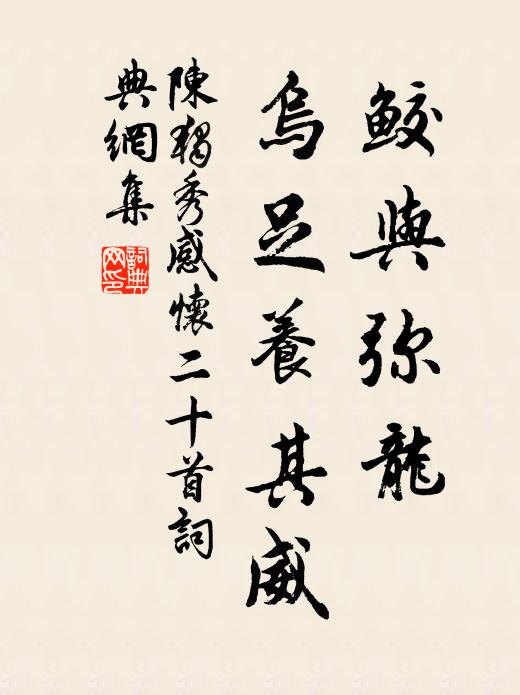 鲛與弥龍
烏足養其威
陳獨秀感懷二十首詞
典網集
詞典
网印